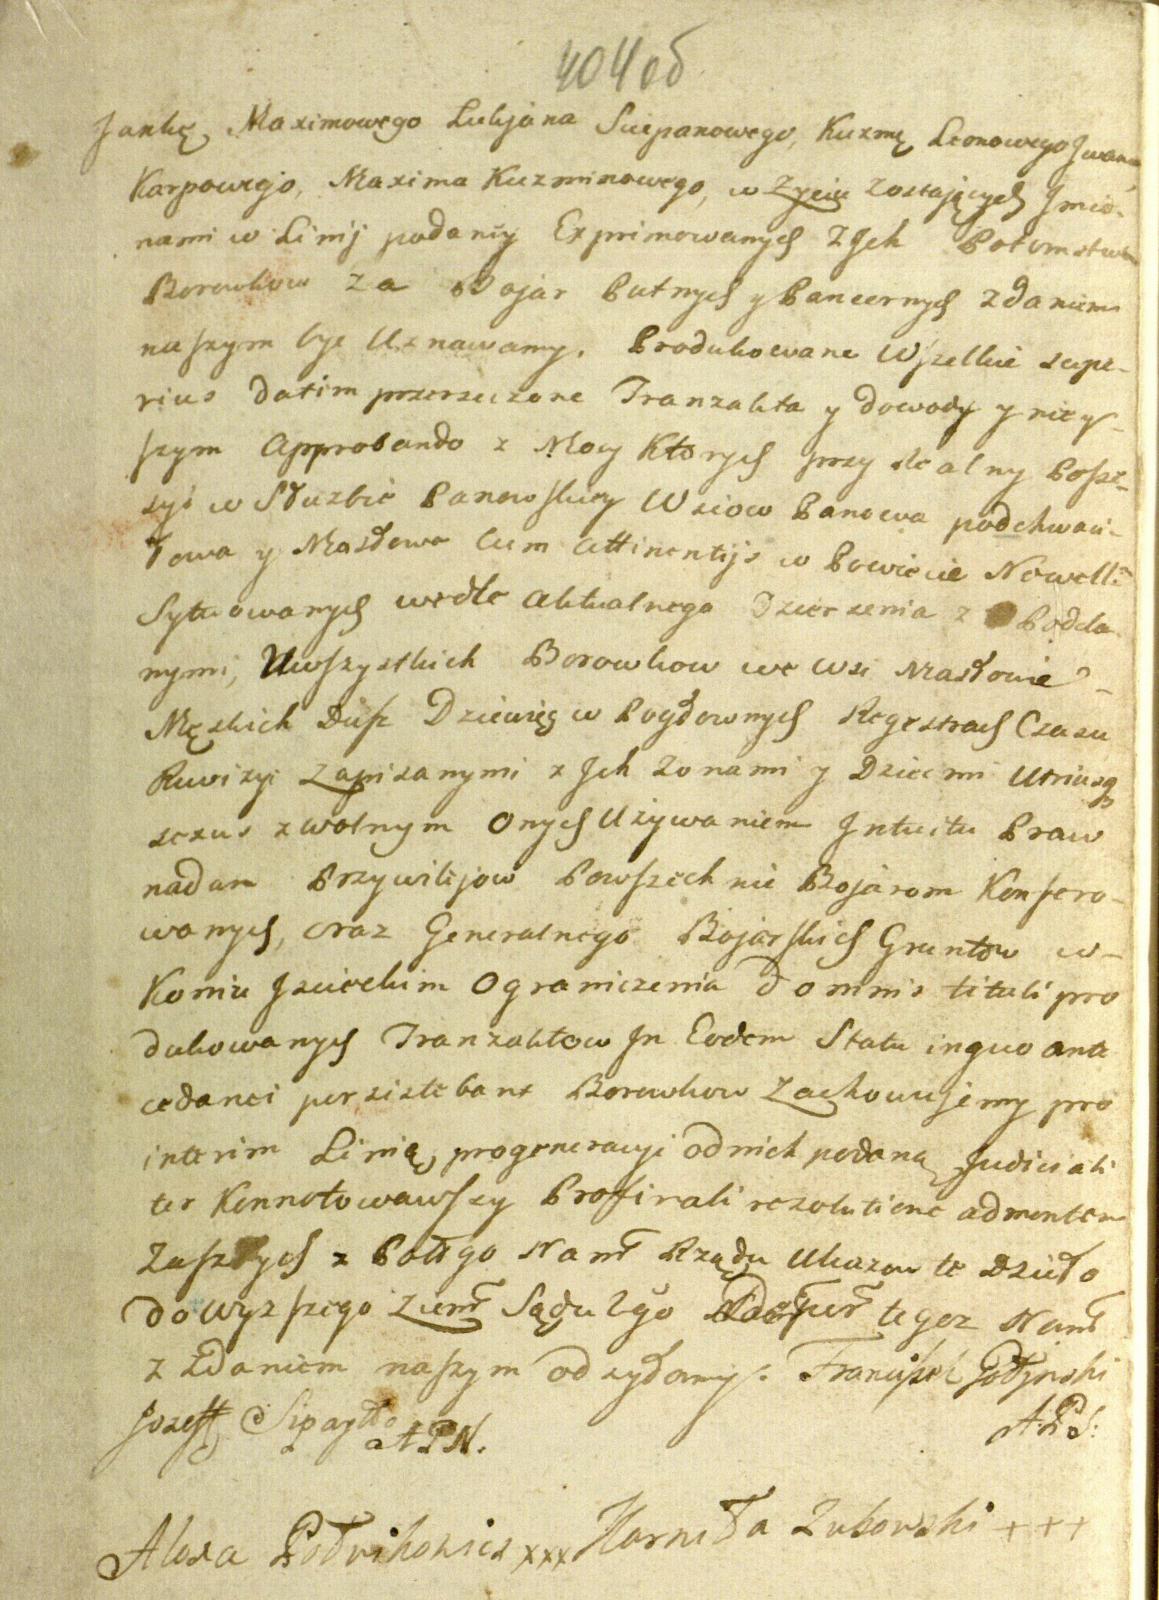 404 об
Jankę Maximowego Lukjana Sciepanowego, Kuzmę Leonowego Jwana
Karpowego, Maxima Kuzminowego, w Zyciu Zostających Jmio-
nami w Linij podaney Exprimowanych Z Jch Potomstwem
Borowkow Za Bojar Putnych y Pancernych Zdaniem
naszym być Uznawamy. Produkowane Wszelkie supe-
rius datim przerzeczone Tranzakta y dowody y niey-
szym Approbando z Mocy Ktorych przy Realney Posse-
syi w Słuzbie Panowskiey Wsiow Panowa podchwaci-
łowa y Masłowa Cum Attinentijs w Powiecie Newell:
Sytuowanych wedle Aktualnego Dzierzenia z Podda-
nymi, Uwszystkich Borowkow we Wsi Masłowie -
Męskich Dusz Dziewięć w Pogłownych Regestrach Czasu
Rewizyi Zapisanymi z Jch Zonami y Dziecmi Utriusq
sexus z wolnym Onych Uzywaniem Jntuitu Praw
nadan Przywilijow Powszechnie Bojarom Konfero-
wanych, oraz Generalnego Bojarskich Gruntow w-
Koniu Jzierkim Ograniczenia domnis tituli pro
dukowanych Tranzaktow Jn Eodem Statu inquo ante
cedanei persistebant Borowkow Zachowujemy pro
interim Linią progeneracyi odnich podaną Judiciali
ter Konnotowawszy Pro finali rezolutione admentem
Zaszłych z Połłgo Namł Rządu Ukazow te Dzieło
do wyzszego Ziemł Sądu 2go tegoz Namł
z Zdaniem naszym odsyłamy. Franciszek Gołynski
Jozeff Sipayło A P N. A: P S:
Alexa Połwikowicz xxx Harniła Zukowski +++